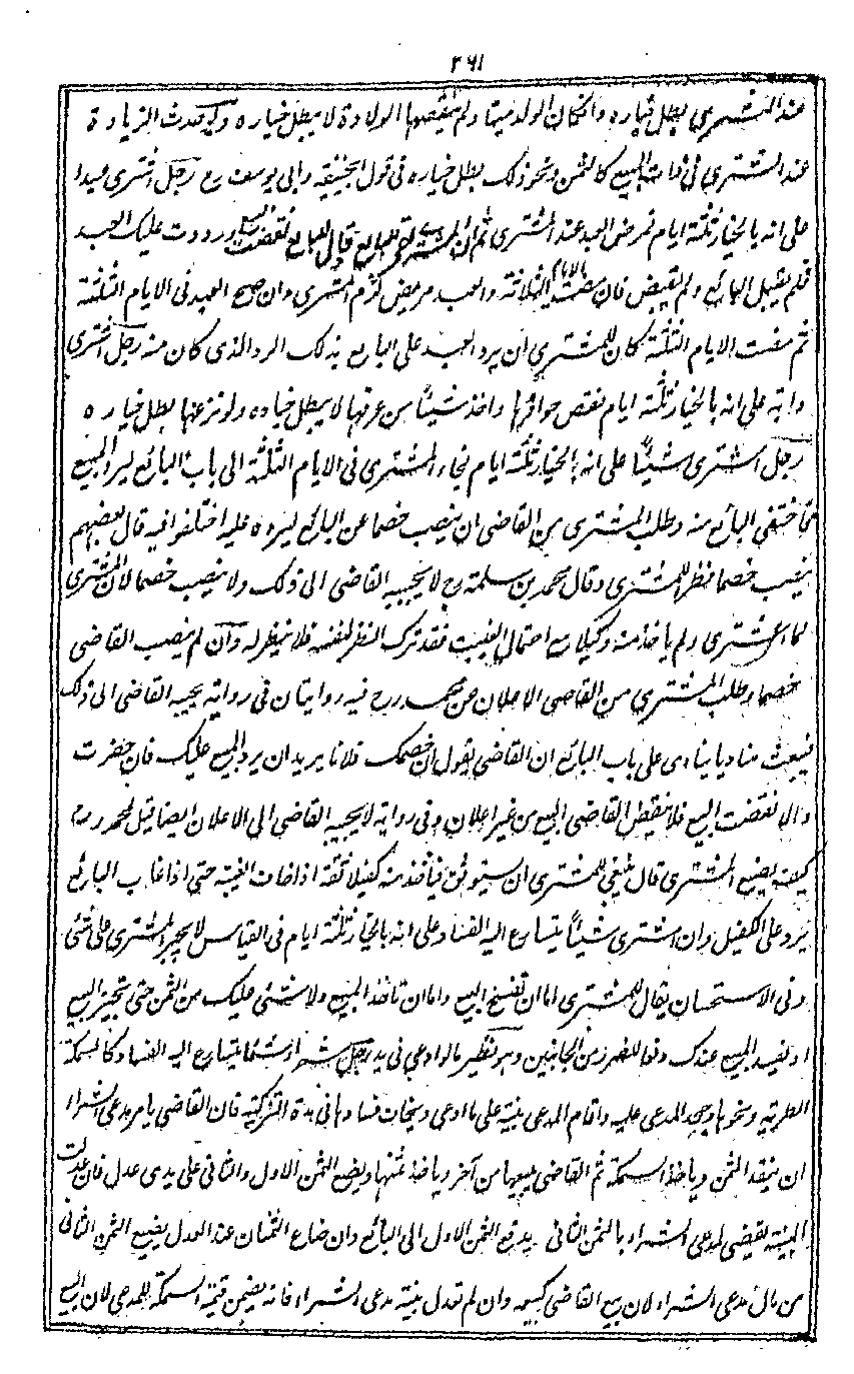 ٢٦١
عند المشترى بطل خياره وان كان الولد ميتا ولم تنقصها الولادة لا يبطل خياره ولو حدثت الزيادة
عند المشترى فى ذات المبيع كالسمن ونحو ذلك بطل خياره فى قول ابى حنيفة وابى يوسف رح رجل اشترى عبدا
على انه بالخيار ثلثة ايام فمرض العبد عند المشترى ثم ان المشترى لقى البائع فقال للبائع نقضت البيع ورددت عليك العبد
فلم يقبل البائع ولم يقبض فان مضت الايام الثلاثة والعبد مريض لزم المشترى وان صح العبد فى الايام الثلثة
ثم مضت الايام الثلثة كان للمشترى ان يرد العبد على البائع بذلك الرد الذى كان منه رجل اشترى
دابة على انه بالخيار ثلثة ايام فقص حوافرها واخذ شيئا من عرفها لا يبطل خياره ولو نزعها بطل خياره
رجل اشترى شيئا على انه بالخيار ثلثة ايام فجاء المشترى فى الايام الثلثة الى باب البائع ليرد المبيع
فاختفى البائع منه وطلب المشترى من القاضى ان ينصب خصما عن البائع ليرده عليه اختلفوا فيه قال بعضهم
ينصب خصما نظرا للمشترى وقال محمد بن سلمة رح لا يجيبه القاضى الى ذلك ولا ينصب خصما لان المشترى
لما اشترى ولم ياخذ منه وكيلا مع احتمال الغيبة فقد ترك النظر لنفسه فلا ينظر له وان لم ينصب القاضى
خصما وطلب المشترى من القاضى الاعلان عن محمد رح فيه روايتان فى رواية يجيبه القاضى الى ذلك
فيبعث مناديا ينادى على باب البائع ان القاضى يقول ان خصمك فلانا يريد ان يرد المبيع عليك فان حضرت
والا نقضت البيع فلا ينقض القاضى البيع من غير اعلان وفى رواية لا يجيبه القاضى الى الاعلان ايضا قيل لمحمد رح
كيف يصنع المشترى قال ينبغى للمشترى ان يستوثق فياخذ منه كفيلا ثقة اذا خاف الغيبة حتى اذا غاب البائع
يرد على الكفيل وان اشترى شيئا يتسارع اليه الفساد على انه بالخيار ثلثة ايام فى القياس لا يجبر المشترى على شئ
وفى الاستحسان يقال للمشترى اما ان تفسخ البيع واما ان تاخذ المبيع ولا شئ عليك من الثمن حتى تجيز البيع
او يفسد المبيع عندك دفعا للضرر من الجانبين وهو نظير ما لو ادعى فى يد رجل شراء شئ يتسارع اليه الفساد كالسمكة
الطرية ونحوها وجحد المدعى عليه واقام المدعى بينة على ما ادعى ويخاف فسادها فى مدة التزكية فان القاضى يامر مدعى الشراء
ان ينقد الثمن وياخذ السمكة ثم القاضى يبيعها من آخر وياخذ ثمنها ويضع الثمن الاول والثانى على يدى عدل فان عدلت
البينة يقضى لمدعى الشراء بالثمن الثانى ويدفع الثمن الاول الى البائع وان ضاع الثمنان عند العدل يضيع الثمن الثانى
من مال مدعى الشراء لان بيع القاضى كبيعه وان لم تعدل بينة مدعى الشراء فانه يضمن قيمة السمكة للمدعى لان البيع